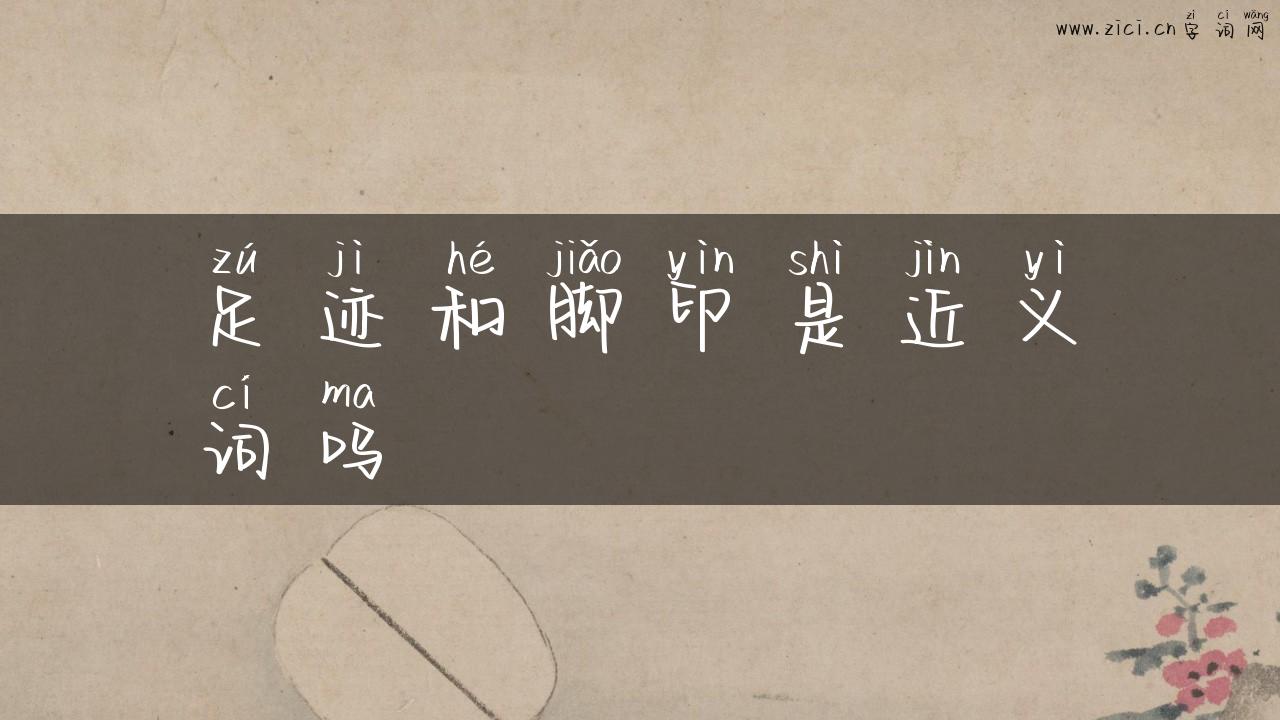 zì cí wǎng
www.zici.cn 字词网
zú jì hé jiǎo yìn shì jìn yì
足迹和脚印是近义
cí ma
词吗